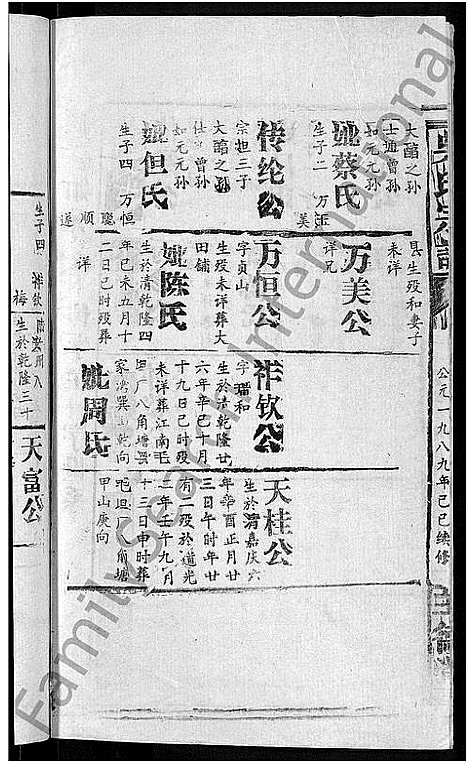 大韶之孙
士通曾孙
如元元孙
妣蔡氏
生子二 万玉
美
传纶公
宗担三子
大韶之孙
仕通曾孙
如元元孙
妣但氏
生子四 万恒
聪
顺
遂
县生殁和妻子
未详
万美公
详兄
万恒公
字贞山
生殁未详葬大
田铺
妣陈氏
生於清乾隆四
年己未五月十
二日巳时殁葬
详
祚钦公
字瑞和
生於清乾隆廿
六年辛巳十月
十九日巳时殁
未详葬江南毛
坦厂八角塘吴
家湾巽山乾向
妣周氏
天桂公
生於清嘉庆六
年辛酉正月廿
三日午时年廿
有二殁於道光
二年壬午九月
十三日申时葬
毛坦厂八角塘
甲山庚向
公元一九八九年己巳续修
生子四 祚钦
梅
生於乾隆三十
天富公
FamilySearch International